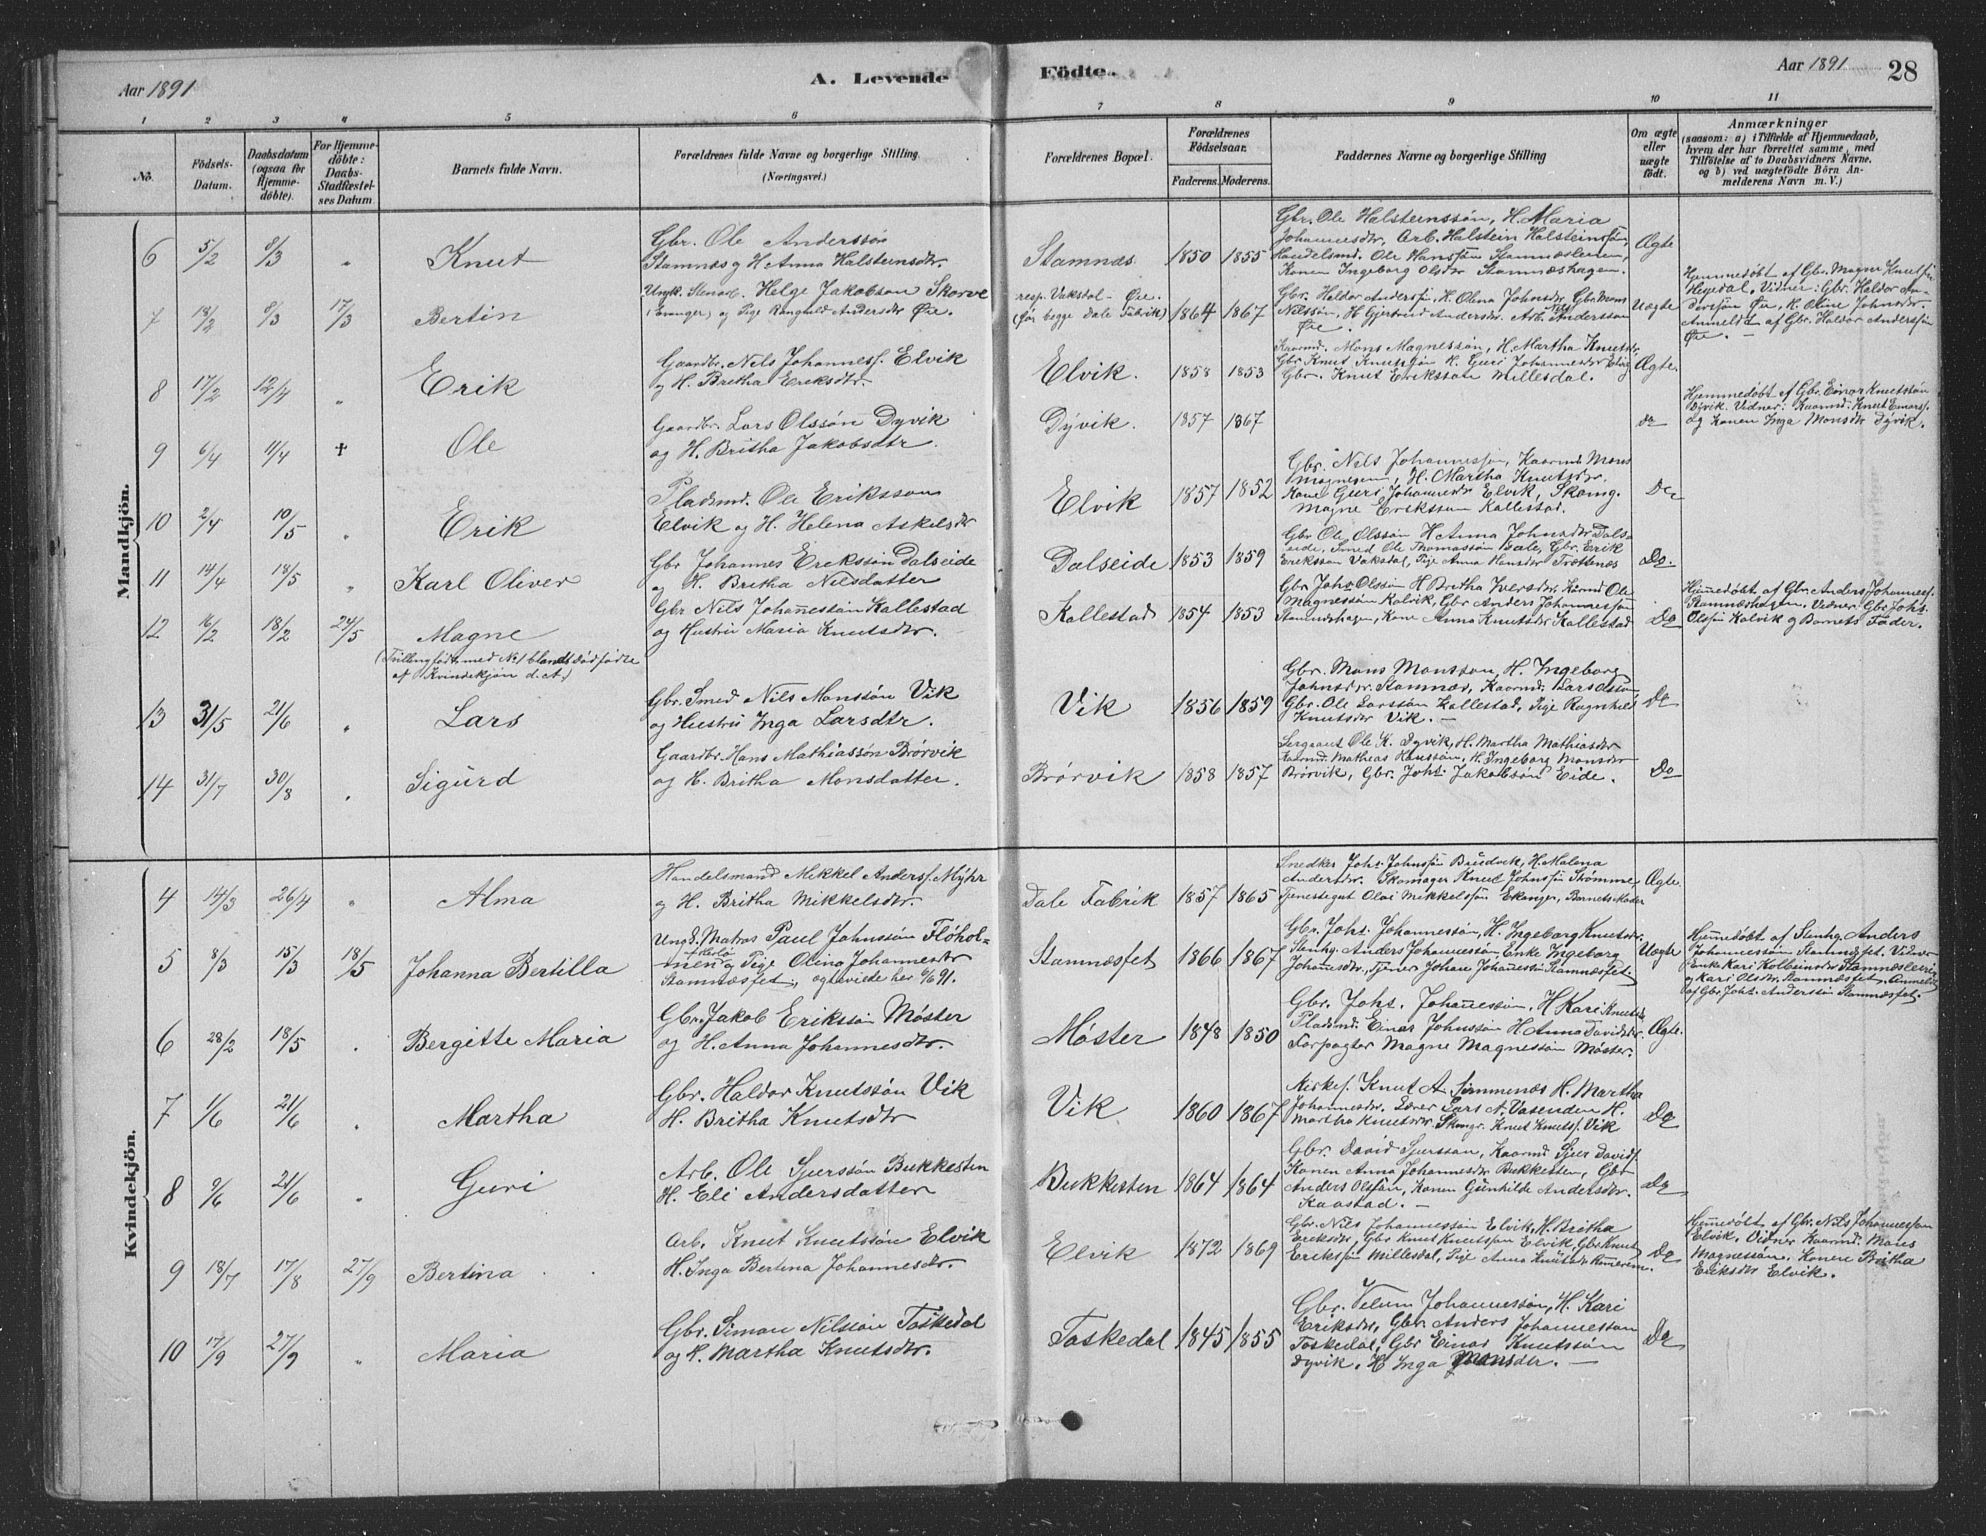 Aar 1891
A. Levende
Födte.
Aar 1891
28
1 2 3 4 5 6 7 8 9 10 11
No.
Födsels-
Datum.
Daabsdatum
(ogsaa for
Hjemme-
döbte).
For Hjemme-
döbte:
Daabs-
Stadfæstel-
ses Datum.
Barnets fulde Navn.
Forældrenes fulde Navne og borgerlige Stilling.
(Næringsvei.)
Forældrenes Bopæl.
Forældrenes
Födselsaar.
Faderens. Moderens.
Faddernes Navne og borgerlige Stilling
Om ægte
eller
uægte
födt.
Anmærkninger
(saasom: a) i Tilfælde af Hjemmedaab,
hvem der har forrettet samme, med
Tilföielse af to Daabsvidners Navne.
og b) ved uægtefödte Börn An-
melderens Navn m. V.)
Mandkjön.
6 5/2 8/3 " Knut
Gbr. Ole Anderssön
Stamnæs og H. Anna Halsteinsdtr.
Stamnæs 1850 1855
Gbr. Ole Halsteinssön, H. Maria
Johannesdtr, Arb. Halstein Halsteinssön,
Handelsmd. Ole Hanssön Stamnæsleiren,
Konen Ingeborg Olsdtr Stamnæshagen.
Ægte
7 18/2 8/3 17/3 Bertin
Ungk. Helge Jakobson Skorve
(Evanger) og Pige Rangnild Andersdtr Øie.
resp. Vaksdal - Øie.
(for begge Dale Fabrik) 1864 1867
Gbr. Haldor Anderssön, H. Olina Johnsdtr, Gbr. Mons
Nilssön, H. Gjertrud Andersdtr. Arb. Andersson
Øie.
Uægte
Hjemmedøbt af Gbr. Magne Knutssön
Hegedal, Vidner: Gbr. Haldor An-
derssön Øie, H. Oline Johnsdtr.
Anmeldt af Gbr. Haldor Anderssön
Øie. -
8 17/2 12/4 " Erik
Gaardbr. Nils Johanness. Elvik
og H. Britha Eriksdtr.
Elvik. 1858 1853
Kaarmd. Mons Magnessön, H. Martha Knutsdtr,
Gbr. Knut Knutssön H. Guri Johannesdtr Elvik
Gbr. Knut Eriksson Millesdal.
Ægte.
9 6/4 11/4 + Ole
Gaardbr. Lars Olssön Dyvik
og H. Britha Jakobsdtr.
Dyvik. 1857 1867
do
Hjemmedøbt af Gbr. Einar Knutssön
Dyvik. Vidner: Kaarmd. Knut Einarss.
og Konen Inga Monsdtr Dyvik.
10 2/4 10/5 " Erik
Pladsmd. Ole Eriksson
Elvik og H. Helena Askelsdtr
Elvik 1857 1852
Gbr. Nils Johannessön, Kaarmd. Mons
Magnessen, H. Martha Knutsdtr.
Kone Guri Johannesdtr Elvik, Skomg.
Magne Eriksson Kallestad.
Do
11 14/4 18/5 " Karl Oliver
Gbr Johannes Erikssön Dalseide
og H. Britha Nilsdatter
Dalseide 1853 1859
Gbr Ole Olssön H Anna Johnsdtr Dals-
eide, Smed Ole Thomassön Dale, Gbr. Erik
Eriksson Vaksdal, Pige Anna Hansdtr Trættenes
Do.
12 16/2 18/2 24/5 Magne
(Tvillingfødt med No 1 blandt Dødfødte
af Kvindekjøn d. A.)
Gbr Nils Johannessön Kallestad
og Hustru Maria Knutsdtr.
Kallestad 1854 1853
Gbr Johs Olssön H Britha Iversdtr Kårmd Ole
Magnessön Kalvik, Gbr Anders Johannessön
Stamneshagen, Kone Anna Knutsdtr Kallestad
Do
Hjemmedøbt af Gbr. Anders Johanness.
Stamnæshagen. Vidner Gbr Johs.
Olssön Kalvik og Barnets Fader.
13 31/5 21/6 " Lars
Gbr. Smed Nils Monssön Vik
og Hustru Inga Larsdtr.
Vik 1856 1859
Gbr. Mons Monsson, H. Ingeborg
Johnsdtr. Stamnæs, Kaarmd. Lars Olsson
Gbr. Ole Larssön Kallestad. Pige Ragnhild
Knutsdtr Vik. -
Do
14 31/7 30/8 . Sigurd
Gaardbr. Hans Mathiassön Brørvik
og H. Britha Monsdatter.
Brørvik 1858 1857
Sergeant Ole K. Dyvik, H. Martha Mathiasdtr
Kaarmd. Mathias Hanssön, H. Ingeborg Monsdtr
Brørvik, Gbr. Johs. Jakobsön Eide.
Do
Kvindekjön.
4 14/3 26/4 " Alma
Handelsmand Mikkel Anderss. Myhr
og H. Britha Mikkelsdtr.
Dale Fabrik 1857 1865
Snedker Johs. Johnssön Brusdvik, H. Malena
Andersdtr. Skomager Knut Johnssön Strømme,
Tjenestegut Olai Mikkelssön Ekanger, Barnets Moder
Ægte.
5 8/3 15/3 18/5 Johanna Bertilla
Ungk. Matros Paul Johnssön Flöhol-
men Herlö og Pige Olina Johannesdtr
Stamnæsfet, ogsaviede her 6/6 91.
Stamnæsfet 1866 1867
Gbr. Johs. Johannessön, H. Ingeborg Knutsdtr,
Stenhg. Anders Johannessön, Enke Ingeborg
Johansdtr, Tjener Johan Johannessön Stamnæsfet.
Uægte
Hjemmedøbt af Stenhg. Anders
Johannessön Stamnæsfet. Vidner
Enke Kari Kolbeinsdtr Stamnæsleirig
og Kari Olsdtr, Stamnæsfet. Anmeldt
af Gbr. Johs. Anderssön Stamnæsfet.
6 28/2 18/5 . Bergitte Maria
Gbr. Jakob Erikssön Møster
og H. Anna Johannesdtr.
Møster 1848 1850
Gbr. Johs. Johannessön, H Kari Knutsdtr
Pladsmd. Einar Johnssön H Anna Davidsdtr.
Forpagter Magne Magnessön Møster.
Ægte.
7 1/6 21/6 . Martha
Gbr. Haldor Knutssön Vik
H. Britha Knutsdtr
Vik 1860 1867
Kirkes. Knut A. Simmenæs H. Martha
Johannesdtr. Lærer Lars A. Vasenden H.
Martha Knutsdtr. Skomgr. Knut Knutss. Vik
Do
8 9/6 21/6 " Guri
Arb. Ole Sjurssön Bukkesten
H. Eli Andersdatter
Bukkesten 1864 1864
Gbr. David Sjursson, Kaarmd Sjur Davids.
Konen Anna Johannesdtr Bukkesten, Gbr
Anders Olssön, Konen Gunhilde Andersdtr.
Kaastad. -
Do
9 18/7 17/8 27/9 Bertina
Arb. Knut Knutssön Elvik
H. Inga Bertina Johannesdtr.
Elvik 1872 1869
Gbr. Nils Johannessön Elvik, H. Britha
Eriksdtr, Gbr Knut Knutssön Elvik, Gbr Knut
Erikssön Millesdal, Pige Anna Knutsdtr
Do
Hjemmedøbt af Gbr. Nils Johannessön
Elvik, Vidner Kaarmd. Mons
Magnessön, Konen Britha
Eriksdtr Elvik.
10 17/9 27/9 " Maria
Gbr. Simon Nilssön Toskedal
og H. Martha Knutsdtr.
Toskedal 1845 1855
Gbr. Johannessön, H. Kari
Eriksdtr, Gbr. Anders Johannesson
Toskedal, Gbr Einar Knutssön
Dyvik, H Inga Monsdtr. -
Do